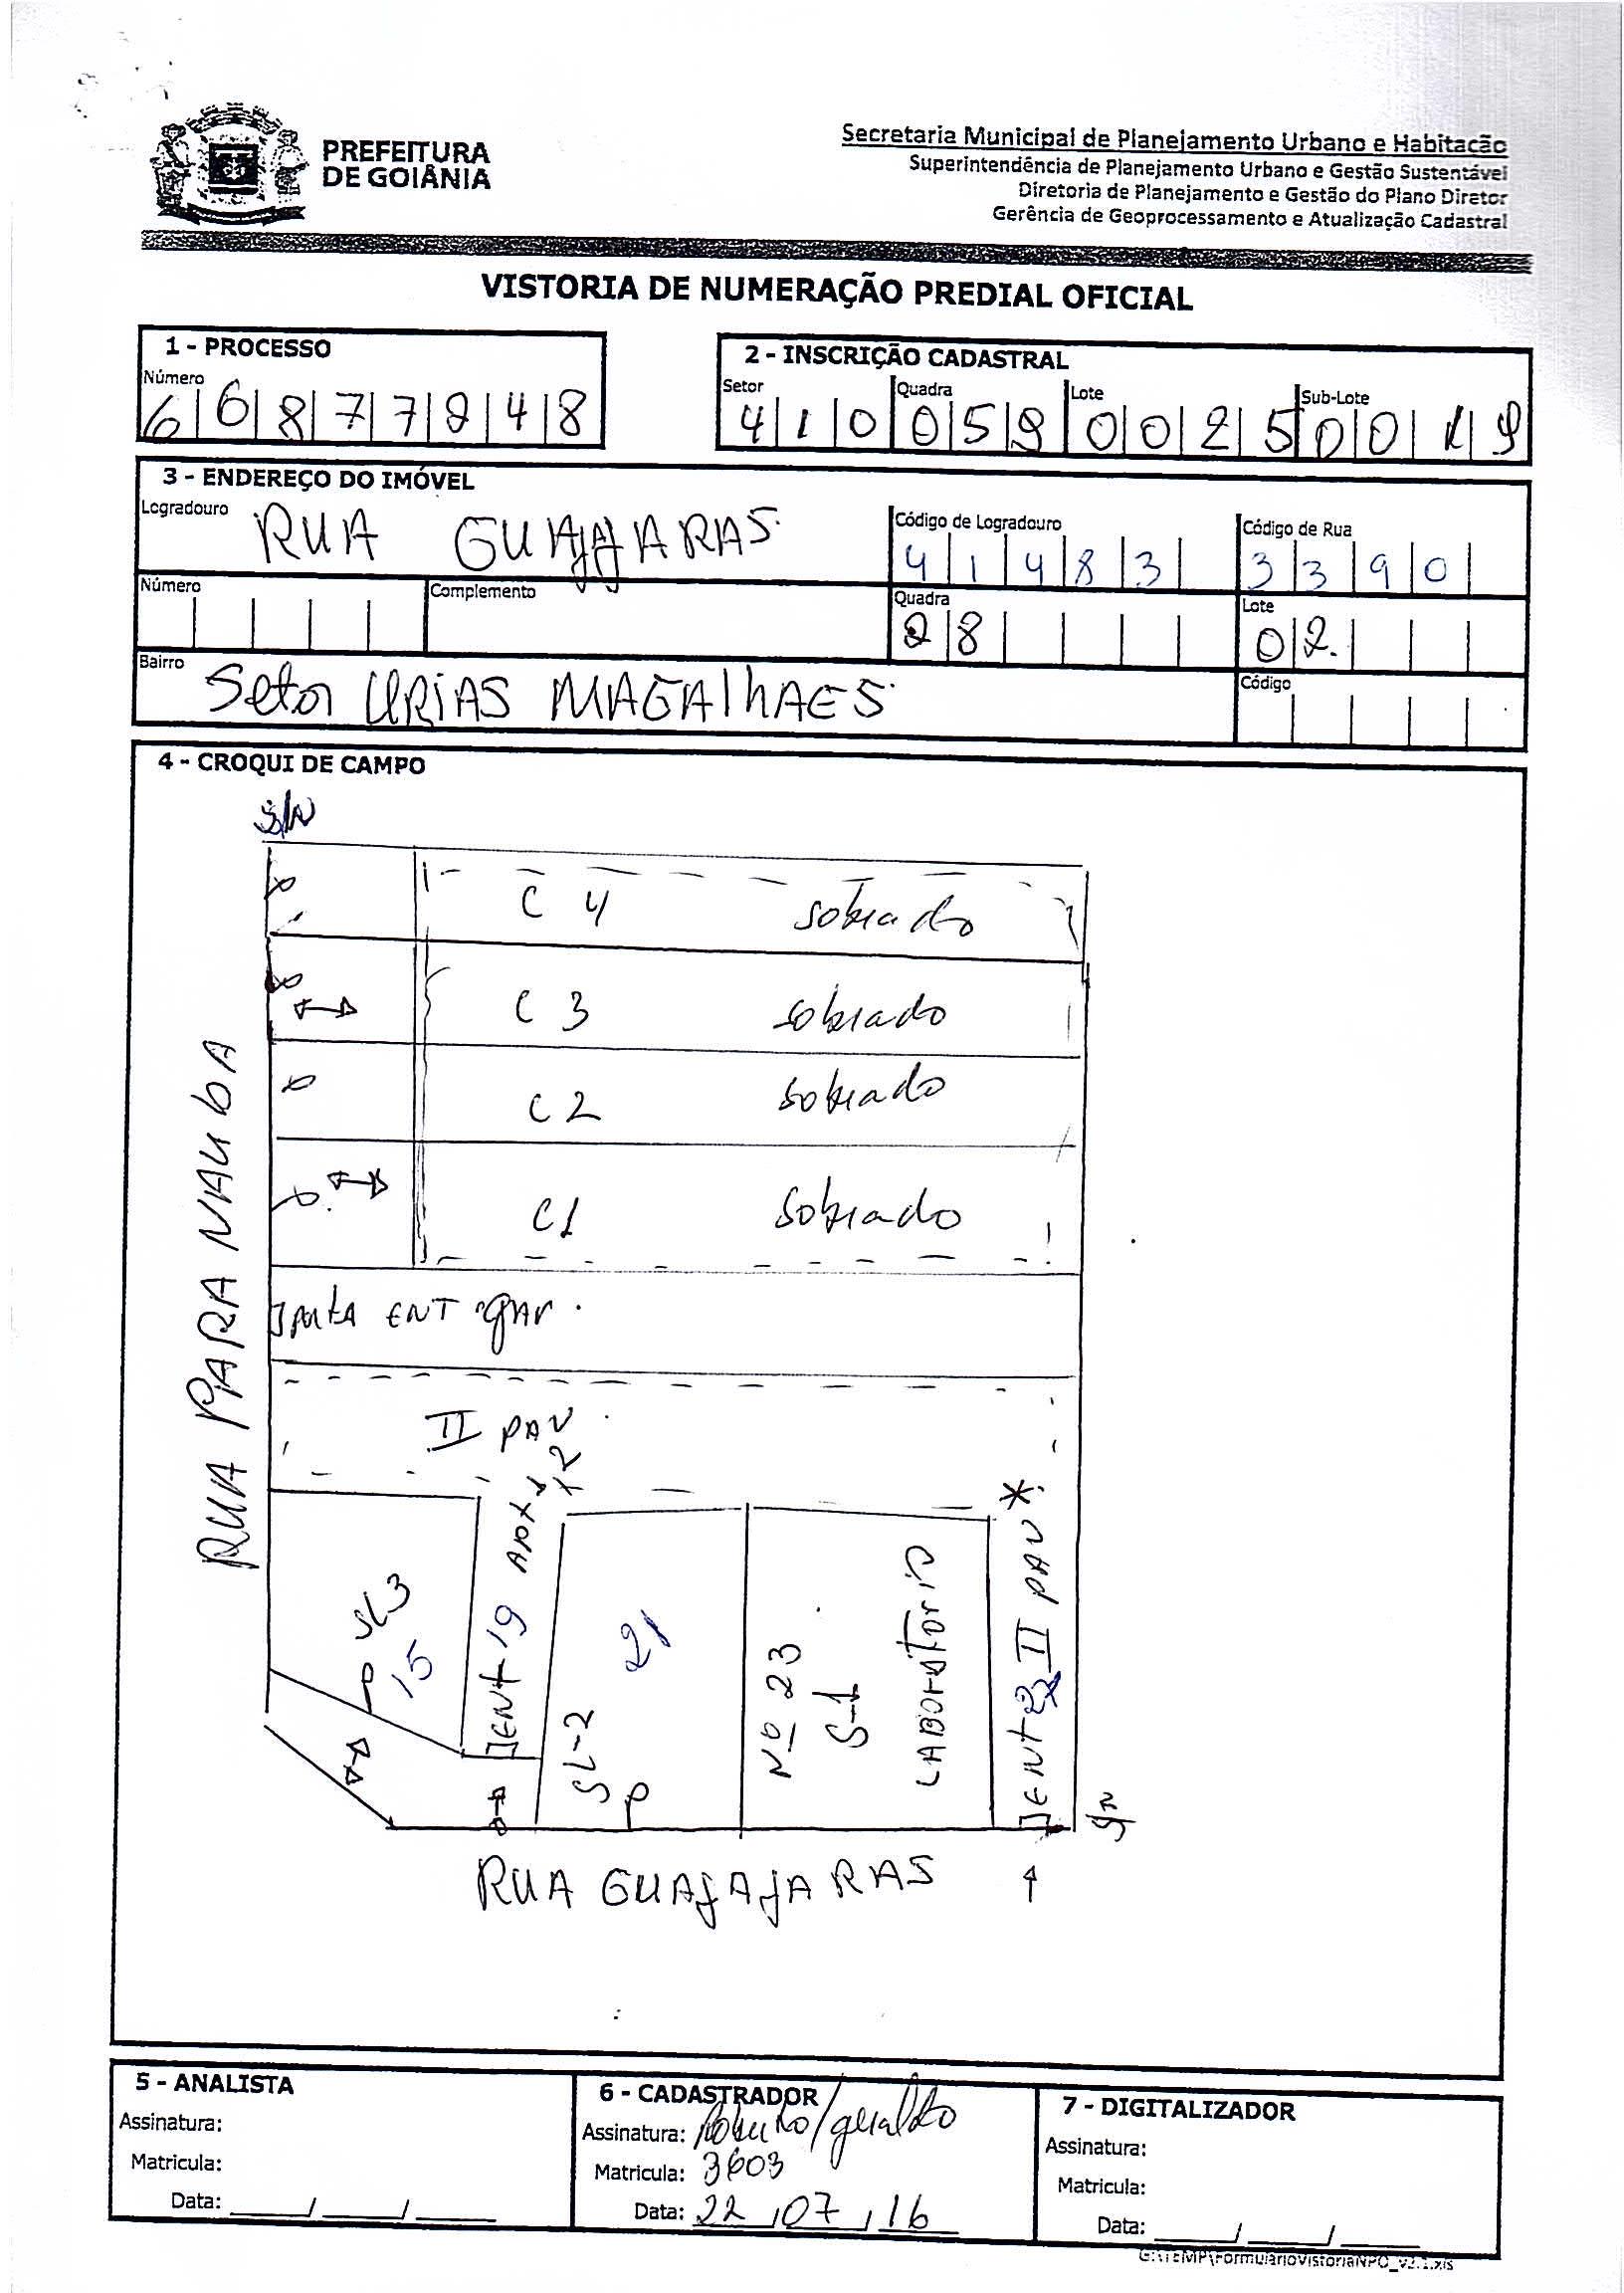 PREFEITURA
DE GOIÂNIA
Secretaria Municipal de Planejamento Urbano e Habitação
Superintendência de Planejamento Urbano e Gestão Sustentável
Diretoria de Planejamento e Gestão do Plano Diretor
Gerência de Geoprocessamento e Atualização Cadastral
VISTORIA DE NUMERAÇÃO PREDIAL OFICIAL
1 - PROCESSO
Número
6 6 8 7 7 2 4 8
2 - INSCRIÇÃO CADASTRAL
Setor Quadra Lote Sub-Lote
4 1 0 0 5 9 0 0 2 5 0 0 1 9
3 - ENDEREÇO DO IMÓVEL
Logradouro RUA GUAJAJARAS
Código de Logradouro
4 1 4 8 3
Código de Rua
3 3 9 0
Número
Complemento
Quadra
2 8
Lote
0 2
Bairro Setor URIAS MAGALHAES
Código
4 - CROQUI DE CAMPO
S/N
C 4 sobrado
C 3 sobrado
C 2 sobrado
C 1 sobrado
RUA PARANAUBA
ENT
II PAV
SL3
15
ENT 19
SL-2
21
Nº 23
S-1
LABORATORIO
ENT II PAV *
S/N
RUA GUAJAJARAS
5 - ANALISTA
Assinatura:
Matricula:
Data: / /
6 - CADASTRADOR
Assinatura: Roberto/geraldo
Matricula: 3603
Data: 22 / 07 / 16
7 - DIGITALIZADOR
Assinatura:
Matricula:
Data: / /
G:\TEMP\FormularioVistoriaNPO_v2.1.xls